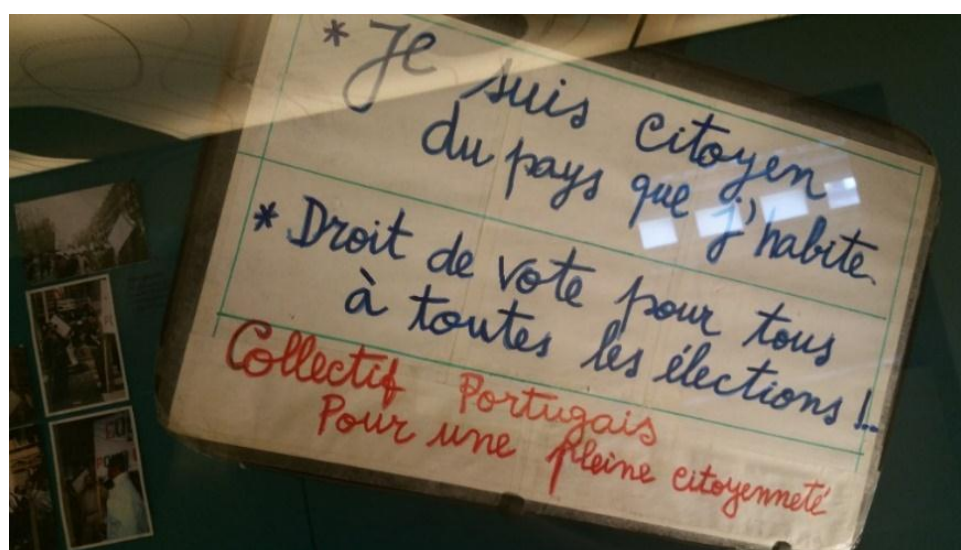 * Je suis citoyen
du pays que j'habite.
* Droit de vote pour tous
à toutes les élections !..
Collectif Portugais
Pour une pleine citoyenneté